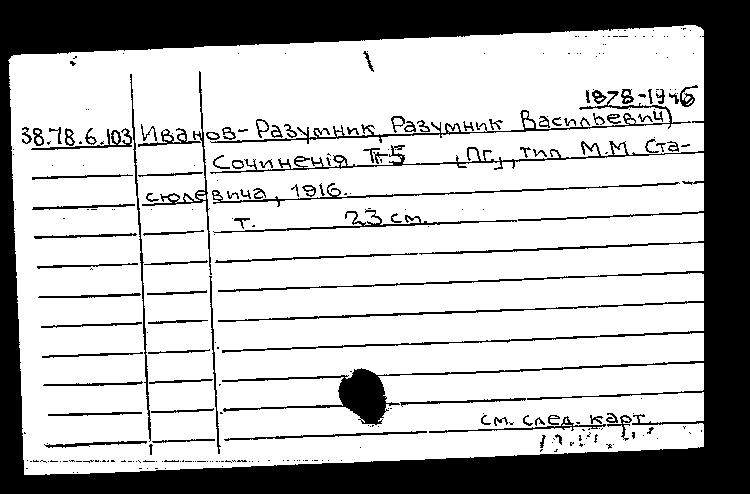 1878-1946
38.78.6.103 Иванов-Разумник, Разумник Васильевич
Сочиненія. Т. 5 [Пг], тип М.М. Ста-
сюлевича, 1916.
т. 23 см.
см. след. карт.